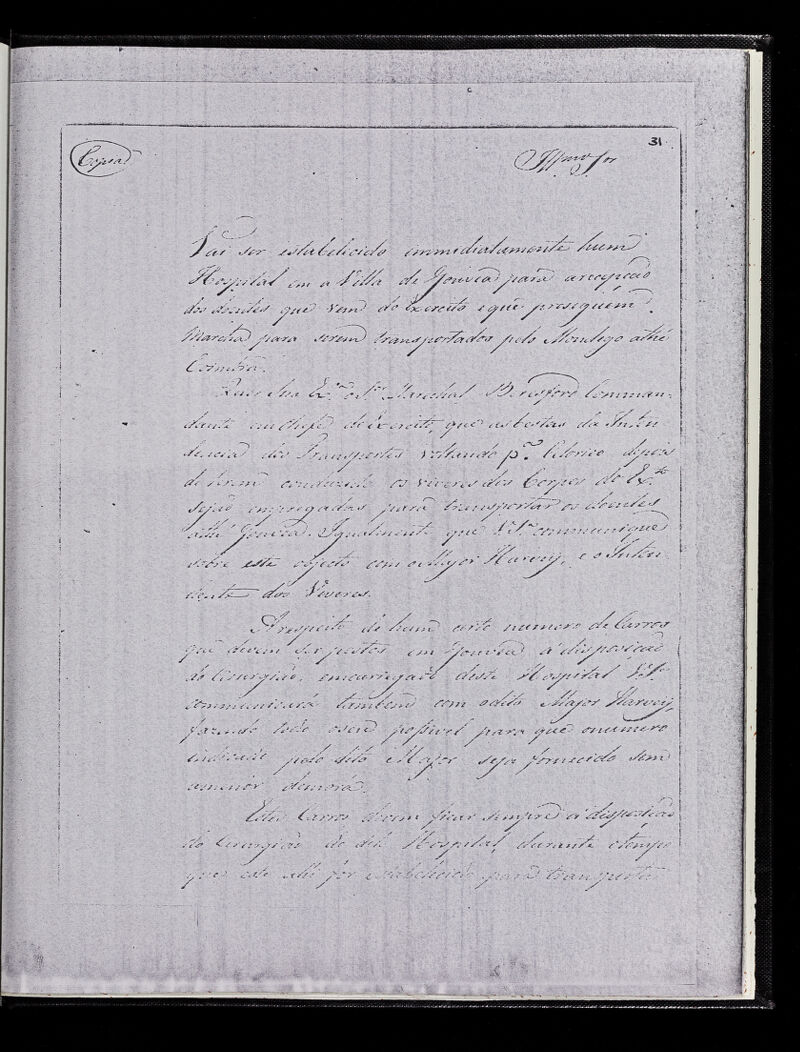 31
Copia
Illmo Sor
Vai ser estabelicido immidiatamente hum
Hospital em a Villa de Gouvea para a recepção
dos doentes que vem do Exercito e que preseguem
Marcha para serem transportados pelo Mondego athé
Coimbra.
Quer Sua Exa o Sr Marechal Beresford Comman-
dante em chefe do Exercito, que as bestas da Inten
dencia dos Transportes voltando pa Celorico depois
de terem conduzido os viveres dos Corpos do Exto
sejão empregadas para transportar os doentes
athé Gouvea. Igualmente que V.Sa communique
sobre este objecto com o Major Harvey, e o Inten
dente dos Viveres.
A respeito de hum certo numero de Carros
que devem ser postos em Gouvea á disposicão
do Cirurgião, emcarregado deste Hospital V.Sa
communicará tambem com o dito Major Harvey,
fazendo todo o seu possivel para que o numero
indicado pelo dito Major seja fornecido sem
amenor demora.
Estes Carros devem ficar sempre á disposicão
do Cirurgião do dito Hospital, durante o tempo
que este alli for estabelicido para transportar